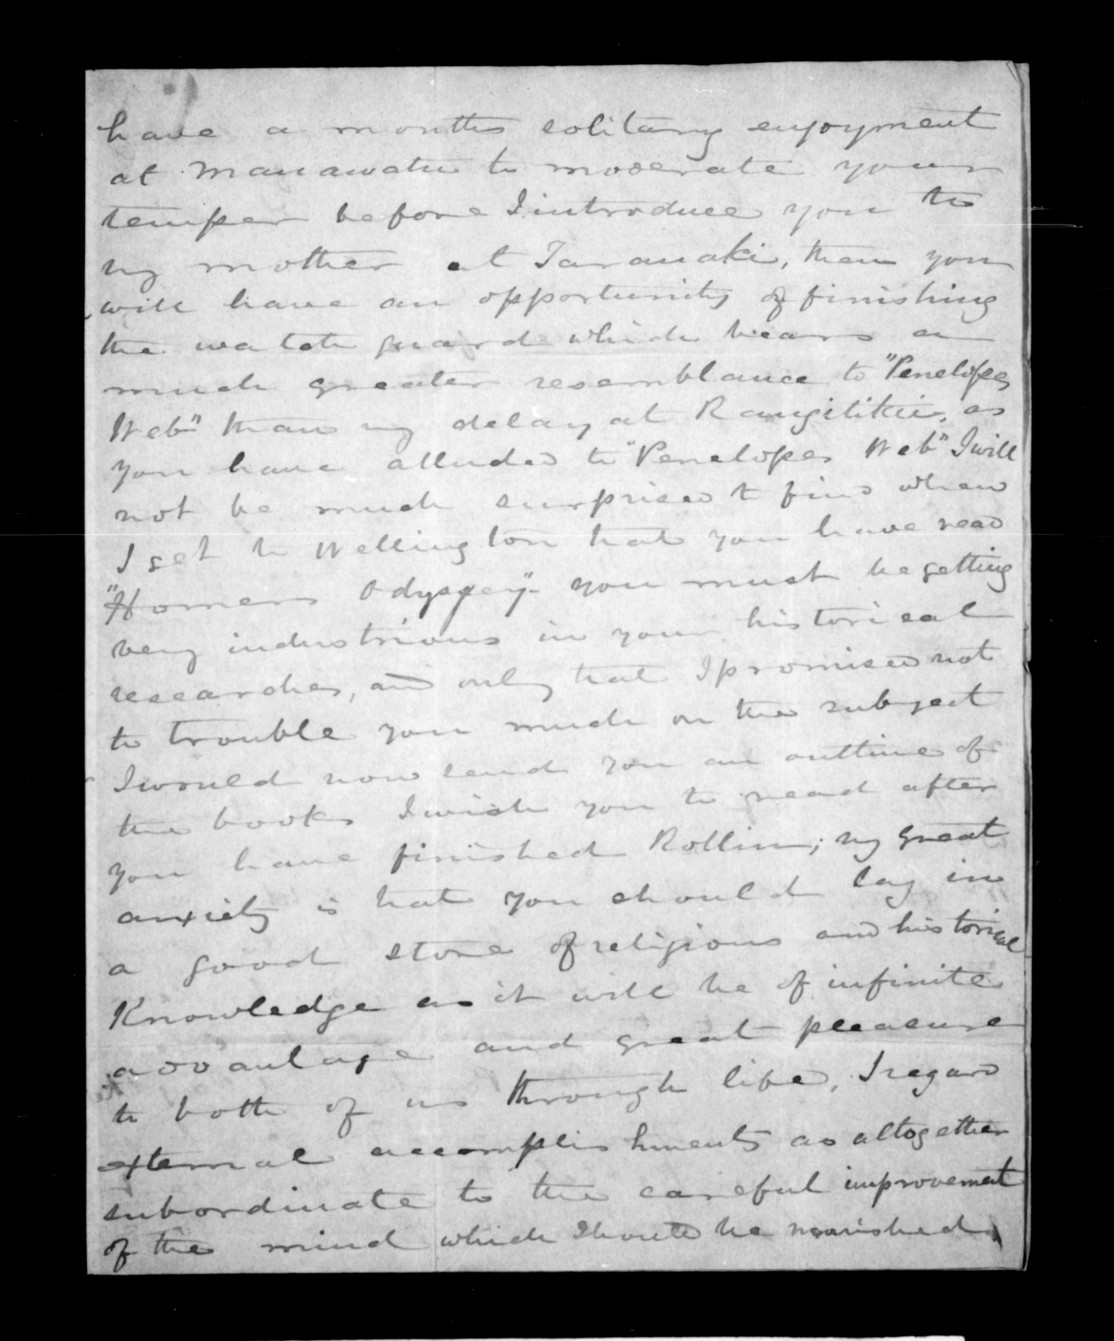 have a months solitary enjoyment
at Manawatu to moderate your
temper before I introduce you to
my mother at Taranaki, then you
will have an opportunity of finishing
the watch guard which bears a
much greater resemblance to "Penelopes
Web" than my delay at Rangitikei, as
you have alluded to "Penelopes Web" I will
not be much surprised to find when
I get to Wellington that you have read
"Homers Odyssey". you must be getting
very industrious in your historical
researches, and only that I promised not
to trouble you much on the subject
I would now send you an outline of
the books I wish you to read after
you have finished Rollin; my great
anxiety is that you should lay in
a good store of religious and historical
Knowledge as it will be of infinite
advantage and great pleasure
to both of us through life, I regard
external accomplishments as altogether
subordinate to the careful improvement
of the mind which should be nourished